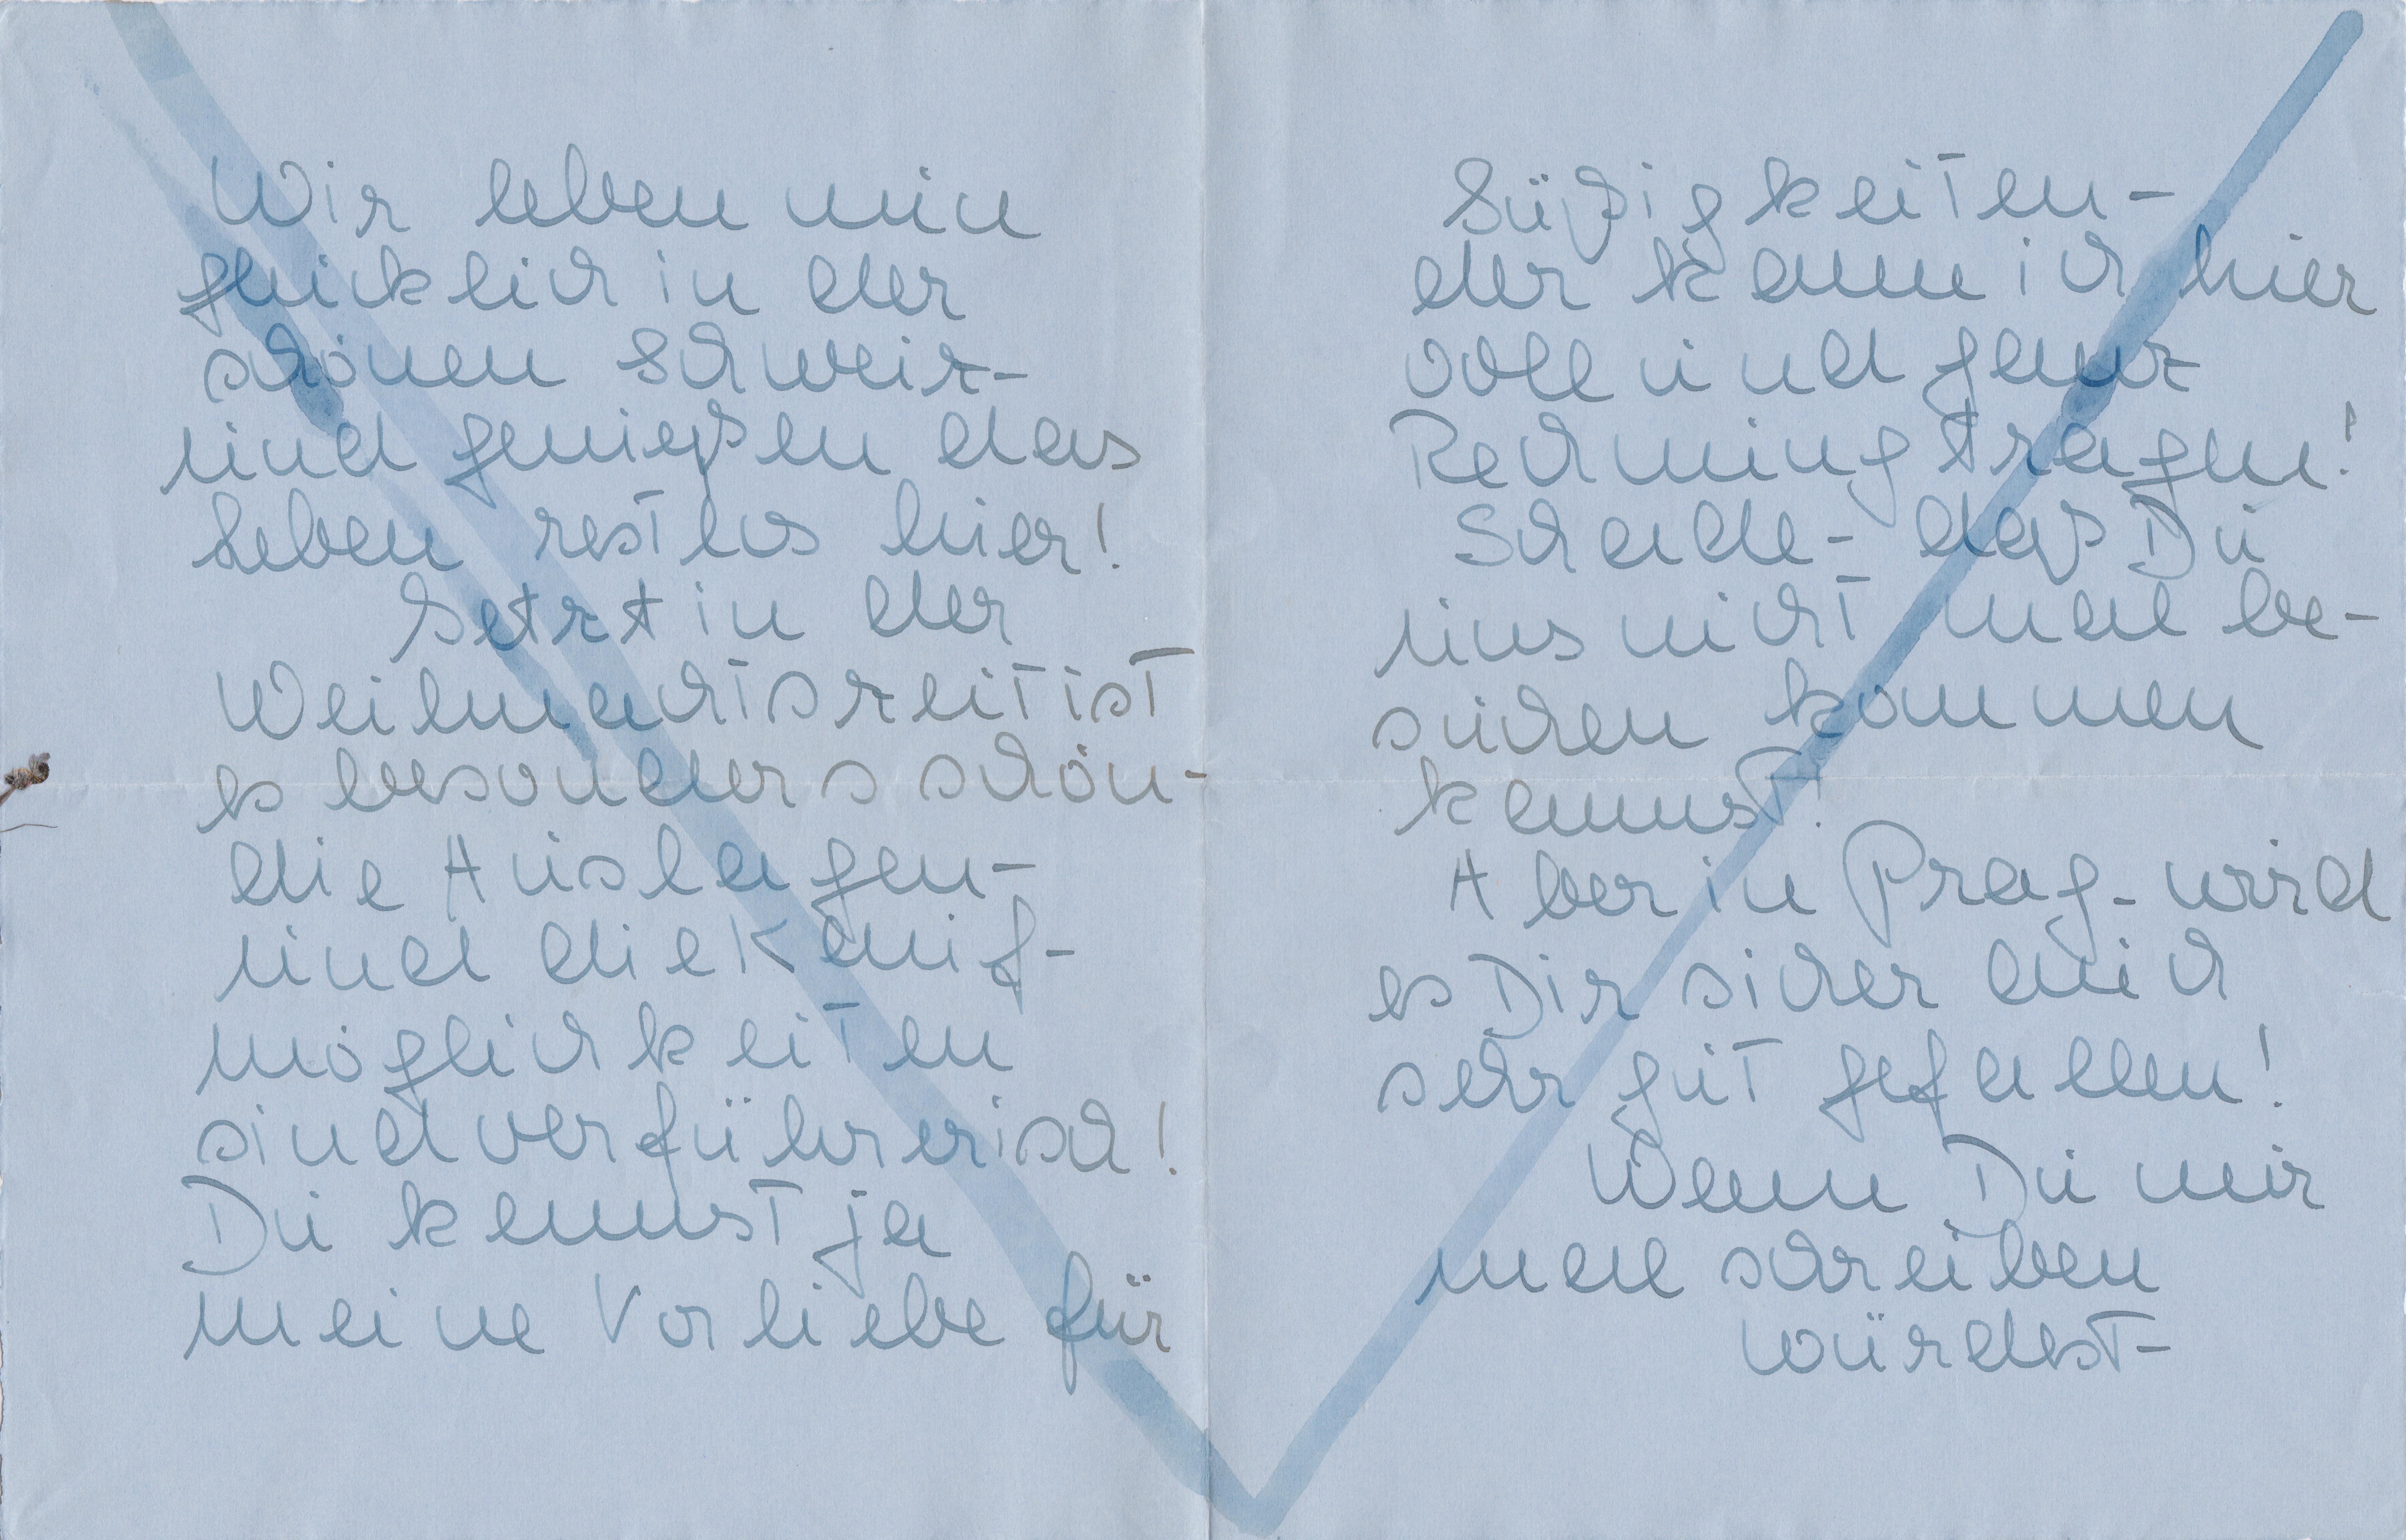 Wir leben nun
glücklich in der
schönen Schweiz-
und genießen das
Leben restlos hier!
Jetzt in der
Weihnachtszeit ist
es besonders schön-
die Auslagen-
und die Kauf-
möglichkeiten
sind verführerisch!
Du kennst ja
meine Vorliebe für
Süßigkeiten-
der kann ich hier
voll und ganz
Rechnung tragen!
Schade- daß Du
uns nicht mal be-
suchen kommen
kannst!
Aber in Prag- wird
es Dir sicher auch
sehr gut gefallen!
Wenn Du mir
mal schreiben
würdest-